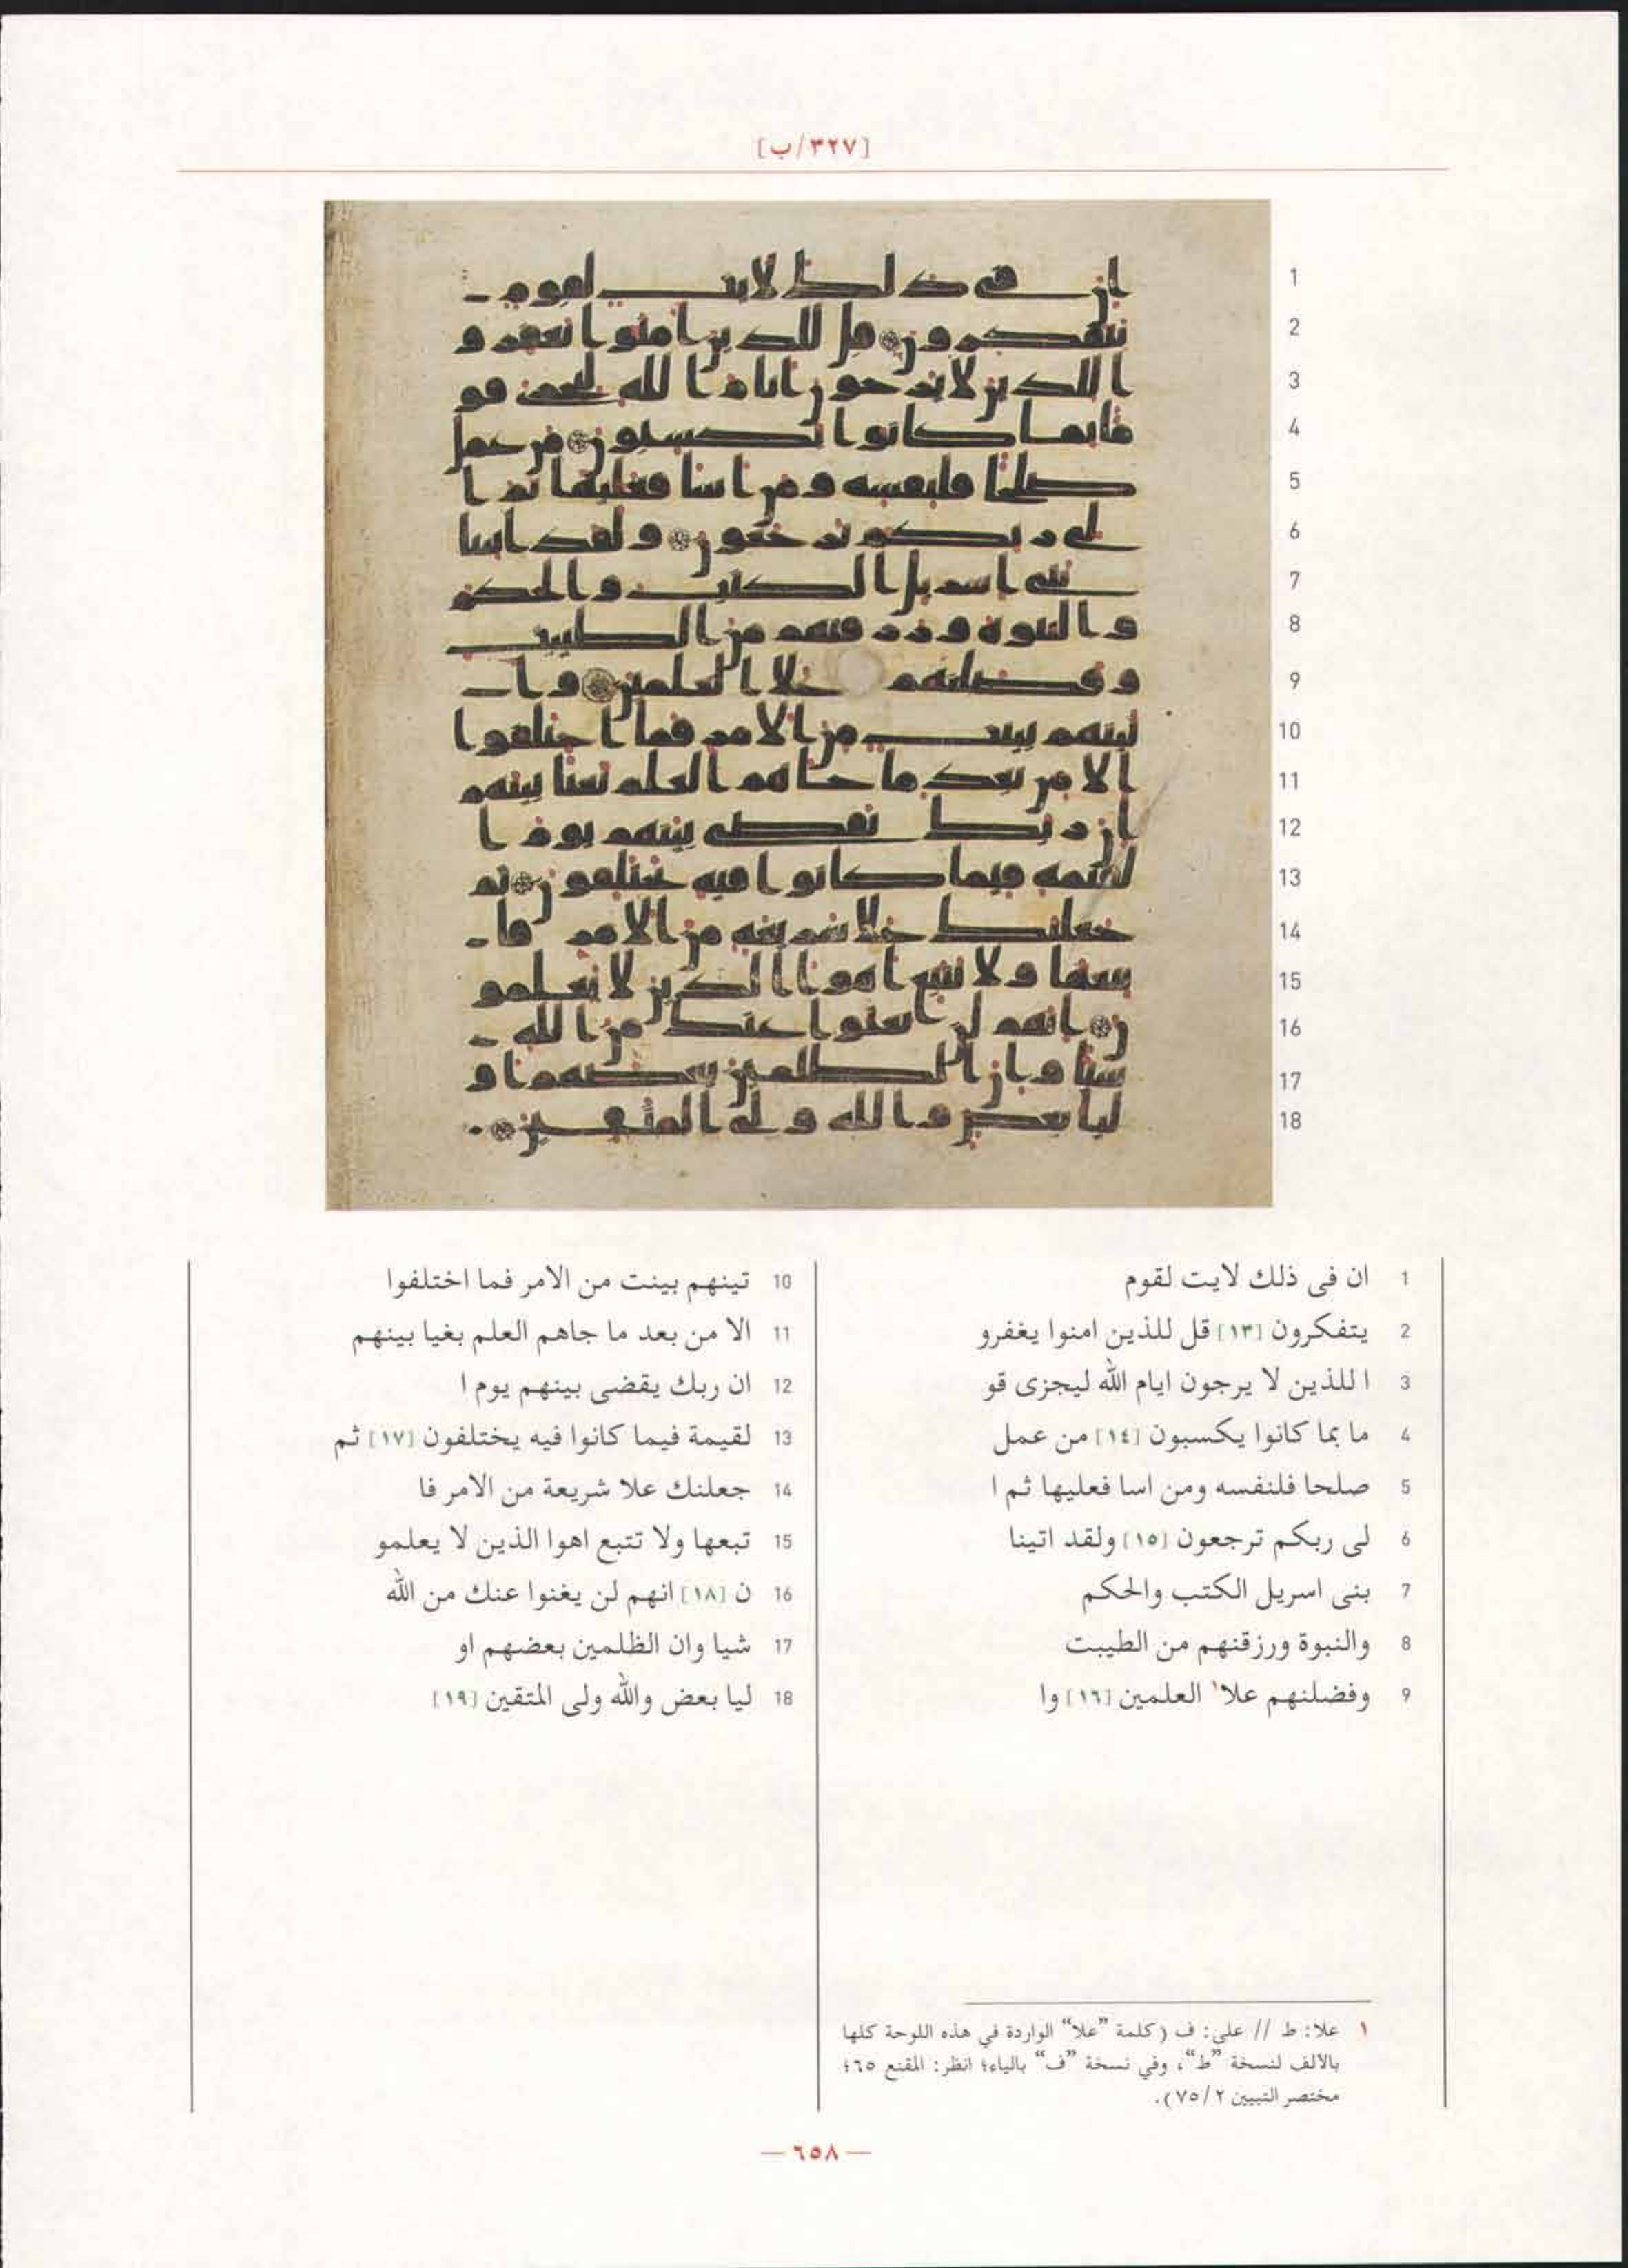 [٣٢٧/ب]
1 ان فى ذلك لايت لقوم
2 يتفكرون [١٣] قل للذين امنوا يغفرو
3 ا للذين لا يرجون ايام الله ليجزى قو
4 ما بما كانوا يكسبون [١٤] من عمل
5 صلحا فلنفسه ومن اسا فعليها ثم ا
6 لى ربكم ترجعون [١٥] ولقد اتينا
7 بنى اسريل الكتب والحكم
8 والنبوة ورزقنهم من الطيبت
9 وفضلنهم علا١ العلمين [١٦] وا
10 تينهم بينت من الامر فما اختلفوا
11 الا من بعد ما جاهم العلم بغيا بينهم
12 ان ربك يقضى بينهم يوم ا
13 لقيمة فيما كانوا فيه يختلفون [١٧] ثم
14 جعلنك علا شريعة من الامر فا
15 تبعها ولا تتبع اهوا الذين لا يعلمو
16 ن [١٨] انهم لن يغنوا عنك من الله
17 شيا وان الظلمين بعضهم او
18 ليا بعض والله ولى المتقين [١٩]
١ علا: ط // على: ف (كلمة ”علا“ الواردة في هذه اللوحة كلها
بالألف لنسخة ”ط“، وفي نسخة ”ف“ بالياء؛ انظر: المقنع ٦٥؛
مختصر التبيين ٢/ ٧٥).
— ٦٥٨ —